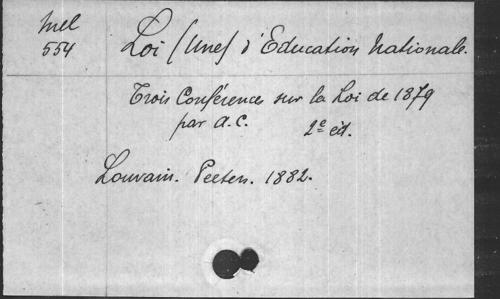 Mel
554
Loi (Une) d'Education Nationale.
Trois Conférences sur la Loi de 1879
par A.C. 2e éd.
Louvain. Peeters. 1882.